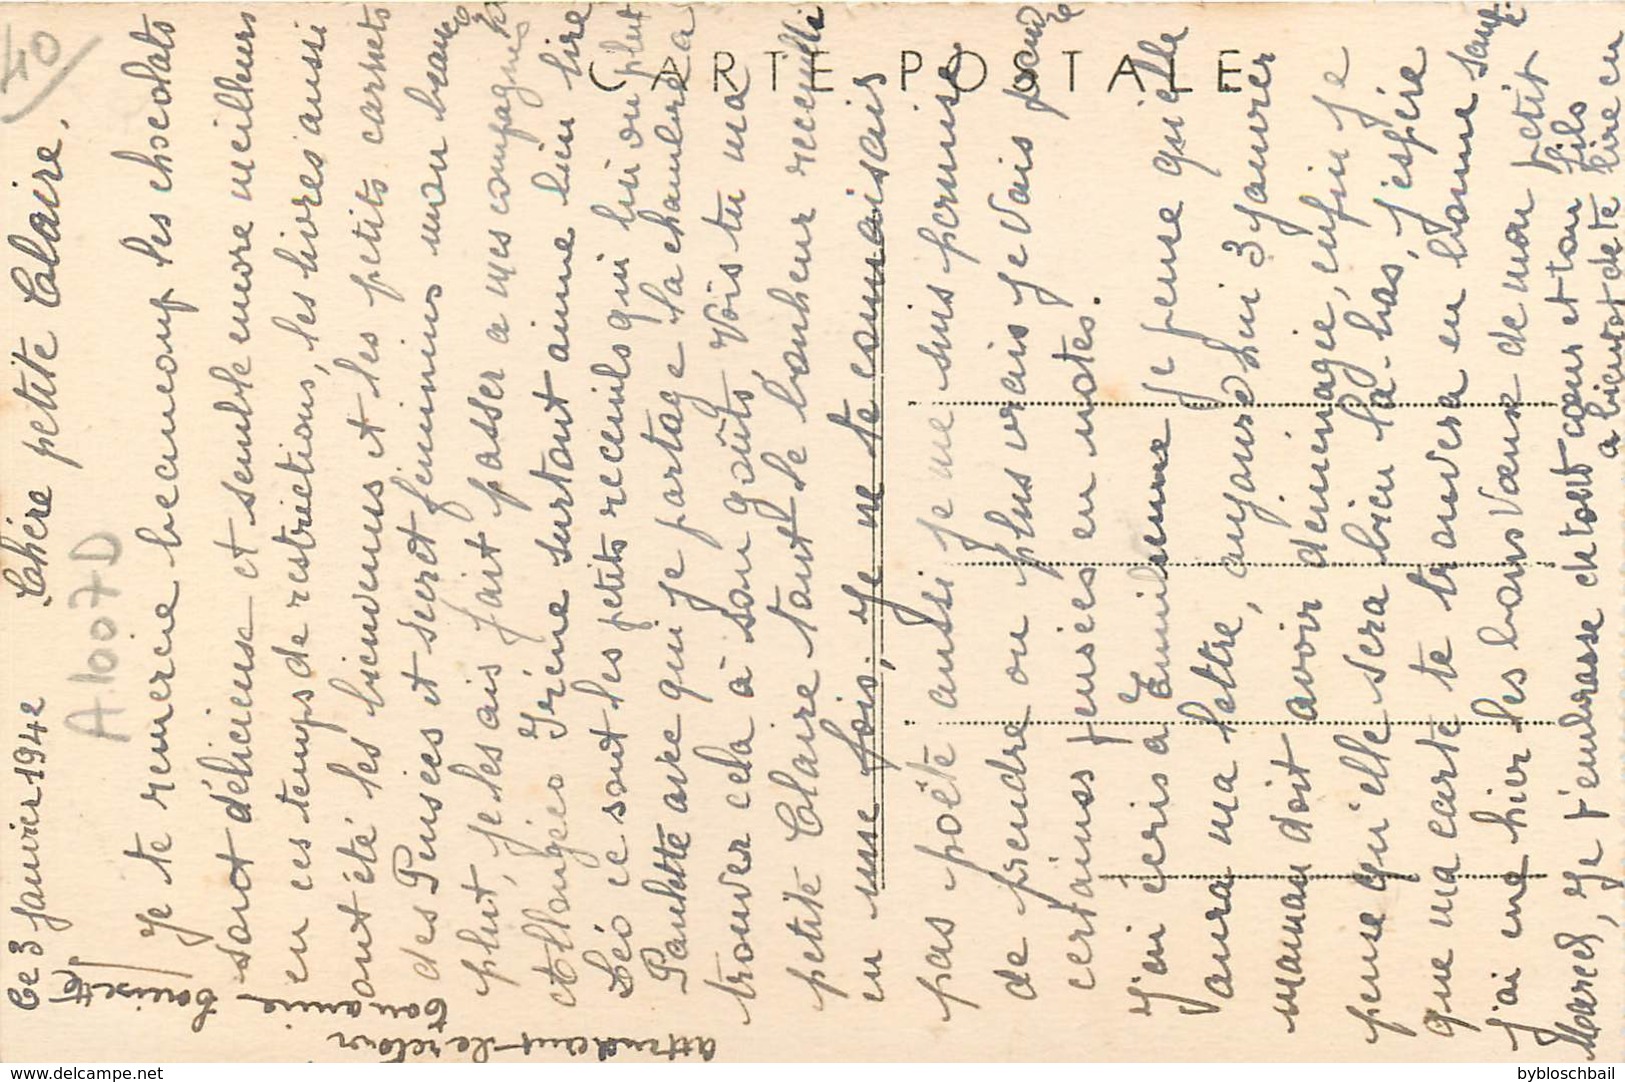 40
A1007D
CARTE POSTALE
Ce 3 Janvier 1942
Chère petite Claire,
Je te remercie beaucoup les chocolats
sont délicieux et semble encore meilleurs
en ces temps de restrictions, les livres aussi
ont été les bienvenus et les petits carnets
des Pensées et secret féminins m'on beaucoup
plut, je les ais fait passer a mes compagnes
et Irène surtout aime bien lire
Léo ce sont les petits receuils qui lui on plut
Paulette avec qui je partage la chambre a
trouver cela à son goûts, Vois tu ma
petite Claire tout le bonheur recueilli
en une fois, Je ne te connaisais
pas poête aussi je me suis permise
de prendre ou plus vrais je vais prendre
certaines pensées en notes.
J'ai écris à Emilienne je pense qu'elle
aura ma lettre, aujourd'hui 3 Janvier
maman doit avoir déménagée, enfin je
pense qu'elle sera bien la-bas, j'espère
que ma carte te trouvera en bonne santé
j'ai eue hier les bons Vœux de mon petit
Marcel, Je t'embrasse de tout cœur et ton fils
a bientot de te lire en
attendant le retour
Ton amie